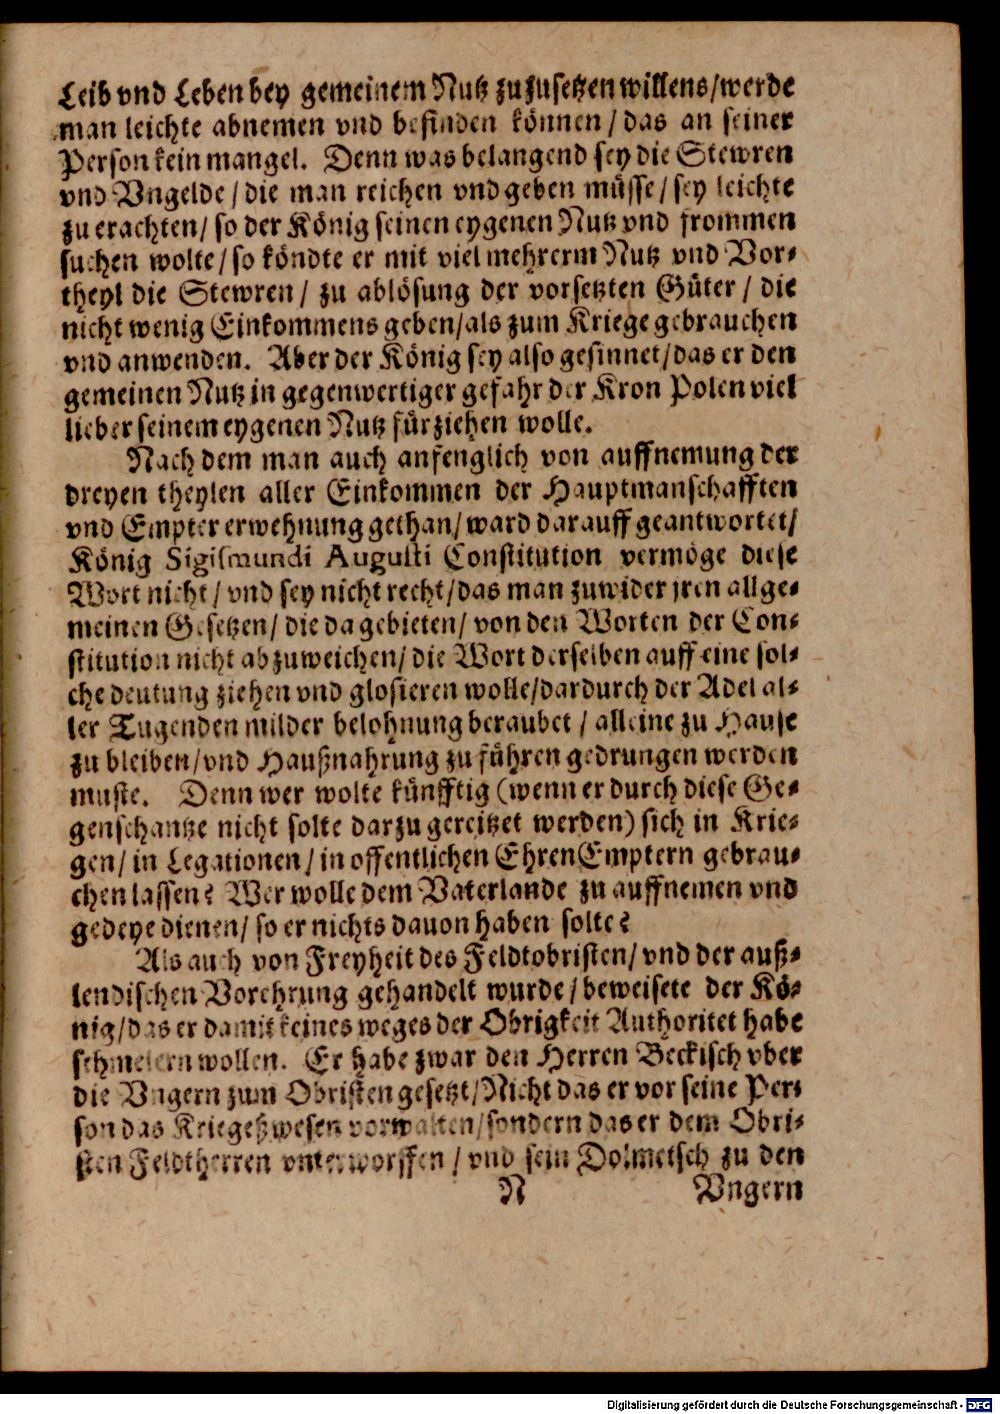 Leib vnd Leben bey gemeinem Nutz zuzusetzen willens/werde
man leichte abnemen vnd befinden können/das an seiner
Person kein mangel. Denn was belangend sey die Stewren
vnd Vngelde/die man reichen vnd geben müsse/sey leichte
zu erachten/so der König seinen eygenen Nutz vnd frommen
suchen wolte/so köndte er mit viel mehrerm Nutz vnd Vor-
theyl die Stewren/ zu ablösung der vorsetzten Güter/die
nicht wenig Einkommens geben/als zum Kriege gebrauchen
vnd anwenden. Aber der König sey also gesinnet/das er den
gemeinen Nutz in gegenwertiger gefahr der Kron Polen viel
lieber seinem eygenen Nutz fürziehen wolle.
Nach dem man auch anfenglich von auffnemung der
dreyen theylen aller Einkommen der Hauptmanschafften
vnd Empter erwehnung gethan/ward darauff geantwortet/
König Sigismundi Augusti Constitution vermöge diese
Wort nicht/vnd sey nicht recht/das man zuwider jren allge-
meinen Gesetzen/die da gebieten/von den Worten der Con-
stitution nicht abzuweichen/die Wort derselben auff eine sol-
che deutung ziehen vnd glosieren wolle/dardurch der Adel al-
ler Tugenden milder belohnung beraubet/alleine zu Hause
zu bleiben/vnd Haußnahrung zu führen gedrungen werden
muste. Denn wer wolte künfftig (wenn er durch diese Ge-
genschantze nicht solte darzu gereitzet werden) sich in Krie-
gen/in Legationen/in offentlichen EhrenEmptern gebrau-
chen lassen? Wer wolle dem Vaterlande zu auffnemen vnd
gedeye dienen/so er nichts dauon haben solte?
Als auch von Freyheit des Feldtobristen/vnd der auß-
lendischen Vorehrung gehandelt wurde/beweisete der Kö-
nig/das er damit keines weges der Obrigkeit Authoritet habe
schmelern wollen. Er habe zwar den Herren Beckisch vber
die Vngern zum Obristen gesetzt/Nicht das er vor seine Per-
son das Kriegeßwesen vorwalten/sondern das er dem Obri-
sten Feldtherren vnterworffen/vnd sein Dolmetsch zu den
N Vngern
Digitalisierung gefördert durch die Deutsche Forschungsgemeinschaft - DFG